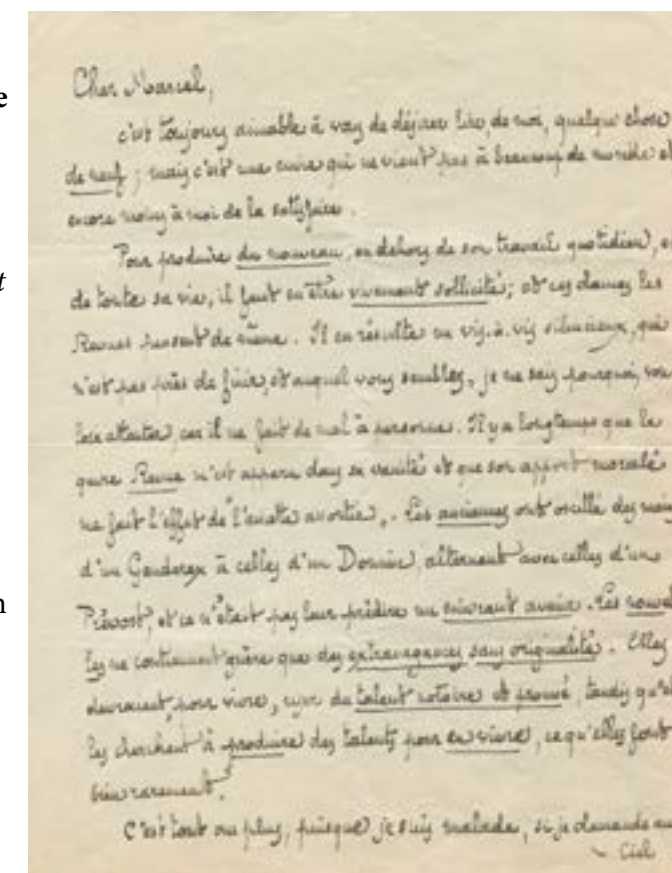 e
Cher Marcel,
c'est toujours aimable à vous de désirer lire, de moi, quelque chose
de neuf ; mais c'est une envie qui ne vient pas à beaucoup de monde et
t
encore moins à moi de la satisfaire.
Pour produire du nouveau, en dehors de son travail quotidien, et
de toute sa vie, il faut en être vivement sollicité ; et ces dames les
Revues pensent de même. Il en résulte un vis-à-vis silencieux, qui
n'est pas près de finir, et auquel vous semblez, je ne sais pourquoi, vou
loir attenter, car il ne fait de mal à personne. Il y a longtemps que la
Revue m'est apparu dans sa vanité et que son apport morcelé
me fait l'effet de l'omelette avortie. Les anciennes ont oscillé des mains
n
d'un Ganderax à celles d'un Doumic, alternant avec celles d'un
Prévost, et ce n'était pas leur prédire un avenir. Les nouvel
les ne contiennent guère que des extravagances sans originalité. Elles
devraient, pour vivre, user du talent notoire et prouvé, tandis qu'el
les cherchent à produire des talents pour en vivre, ce qu'elles font
bien rarement.
C'est tout au plus, puisque je suis malade, si je demande au
Ciel